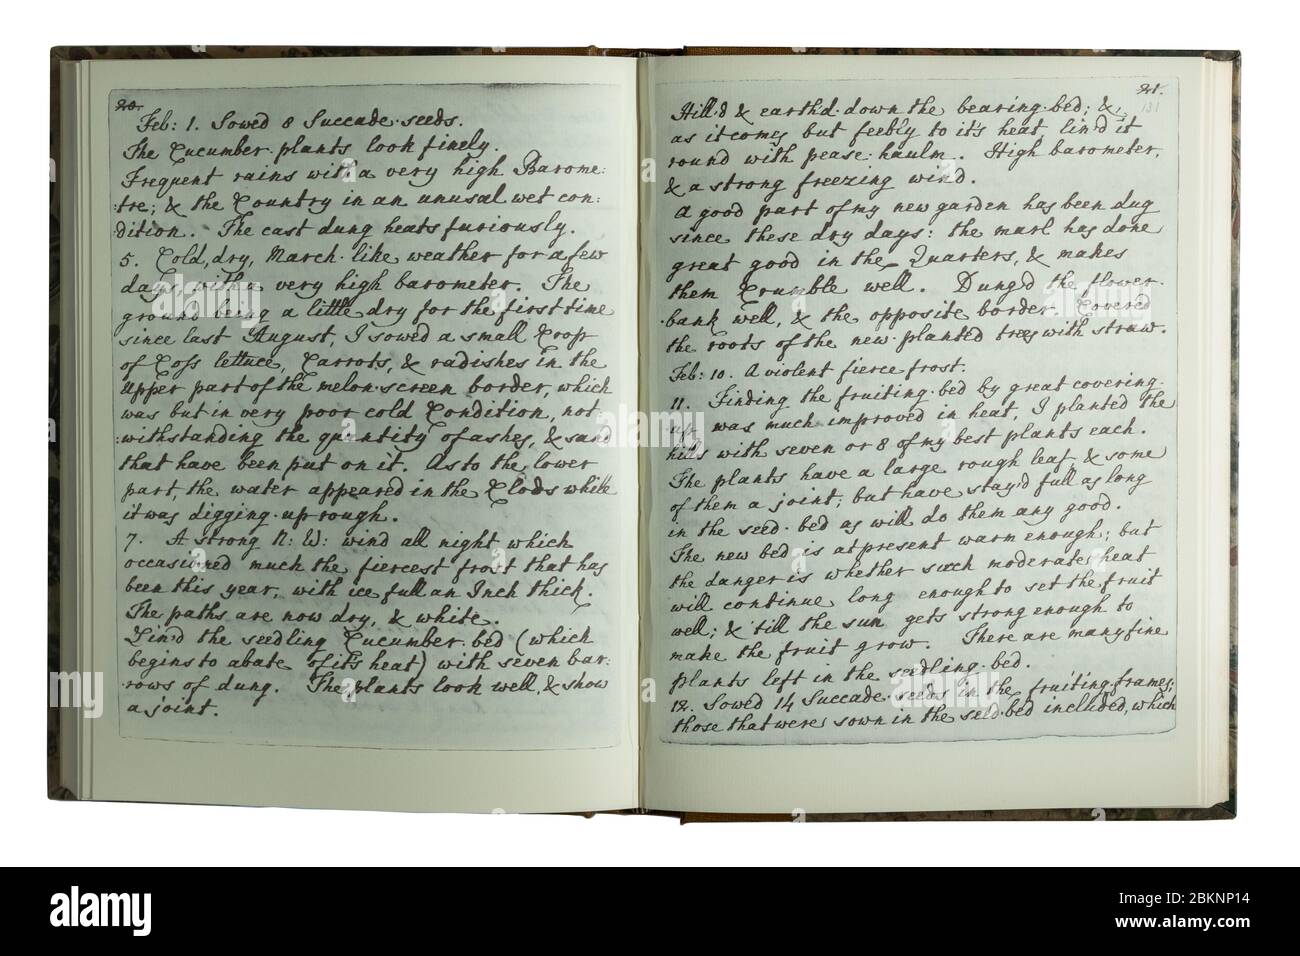 20.
Feb: 1. Sowed 8 Succade-seeds.
The Cucumber-plants look finely.
Frequent rains with a very high Barome:
:tre; & the Country in an unusual wet con:
:dition. The cast dung heats furiously.
5. Cold, dry, March-like weather for a few
days with a very high barometer. The
ground being a little dry for the first time
since last August, I sowed a small Crop
of Coss lettuce, Carrots, & radishes in the
upper part of the melon-screen border, which
was but in very poor cold Condition, not:
:withstanding the quantity of ashes, & sand
that have been put on it. As to the lower
part, the water appeared in the Clods while
it was digging-up rough.
7. A strong N: W: wind all night which
occasioned much the fiercest frost that has
been this year, with ice full an Inch thick.
The paths are now dry, & white.
Lin'd the seedling Cucumber-bed (which
begins to abate of its heat) with seven bar:
:rows of dung. The plants look well, & show
a joint.
21.
131
Hill'd & earth'd-down the bearing-bed; &,
as it comes but feebly to it's heat, lin'd it
round with pease-haulm. High barometer,
& a strong freezing wind.
A good part of my new garden has been dug
since these dry days: the marl has done
great good in the Quarters, & makes
them Crumble well. Dung'd the flower-
:bank well, & the opposite border. Covered
the roots of the new-planted trees with straw.
Feb: 10. A violent fierce frost.
11. Finding the fruiting-bed by great covering-
up was much improved in heat, I planted the
hills with seven or 8 of my best plants each.
The plants have a large rough leaf & some
of them a joint; but have stay'd full as long
in the seed-bed as will do them any good.
The new bed is at present warm enough; but
the danger is whether such moderate heat
will continue long enough to set the fruit
well; & 'till the sun gets strong enough to
make the fruit grow. There are many fine
plants left in the seedling-bed.
12. Sowed 14 Succade-seeds in the fruiting-frames;
those that were sown in the seed-bed included, which
alamy
alamy
Image ID: 2BKNP14
www.alamy.com